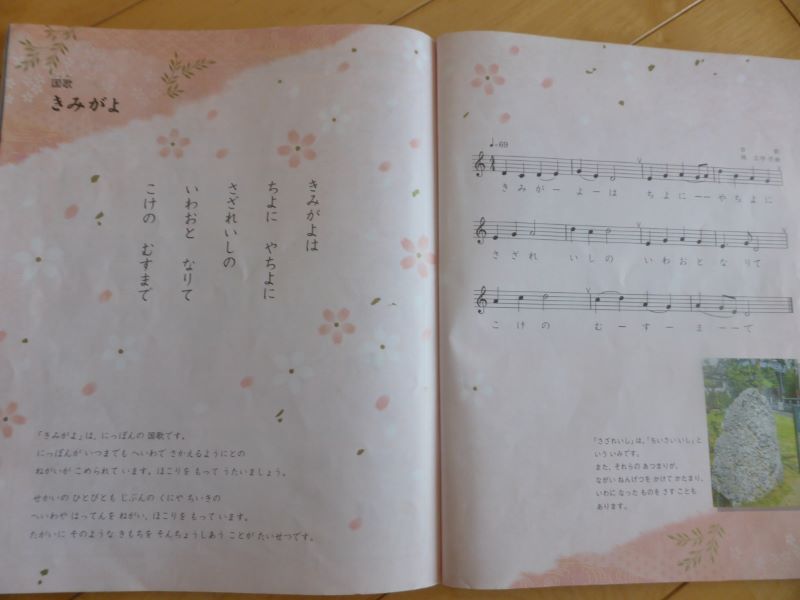 国歌
きみがよ
きみがよは
ちよに やちよに
さざれいしの
いわおと なりて
こけの むすまで
「きみがよ」は、にっぽんの 国歌です。
にっぽんが いつまでも へいわで さかえるようにとの
ねがいが こめられて います。ほこりを もって うたいましょう。
せかいの ひとびとも じぶんの くにや ちいきの
へいわや はってんを ねがい、ほこりを もって います。
たがいに そのような きもちを そんちょうしあう ことが たいせつです。
♩=69
古 歌
林 広守 作曲
きみがーよーは ちよにーーやちよに
さざれ いしの いわおと なりて
こけの むーすーまーーで
「さざれいし」は、「ちいさい いし」と
いう いみです。
また、それらの あつまりが、
ながい ねんげつを かけて かたまり、
いわに なった ものを さす ことも
あります。